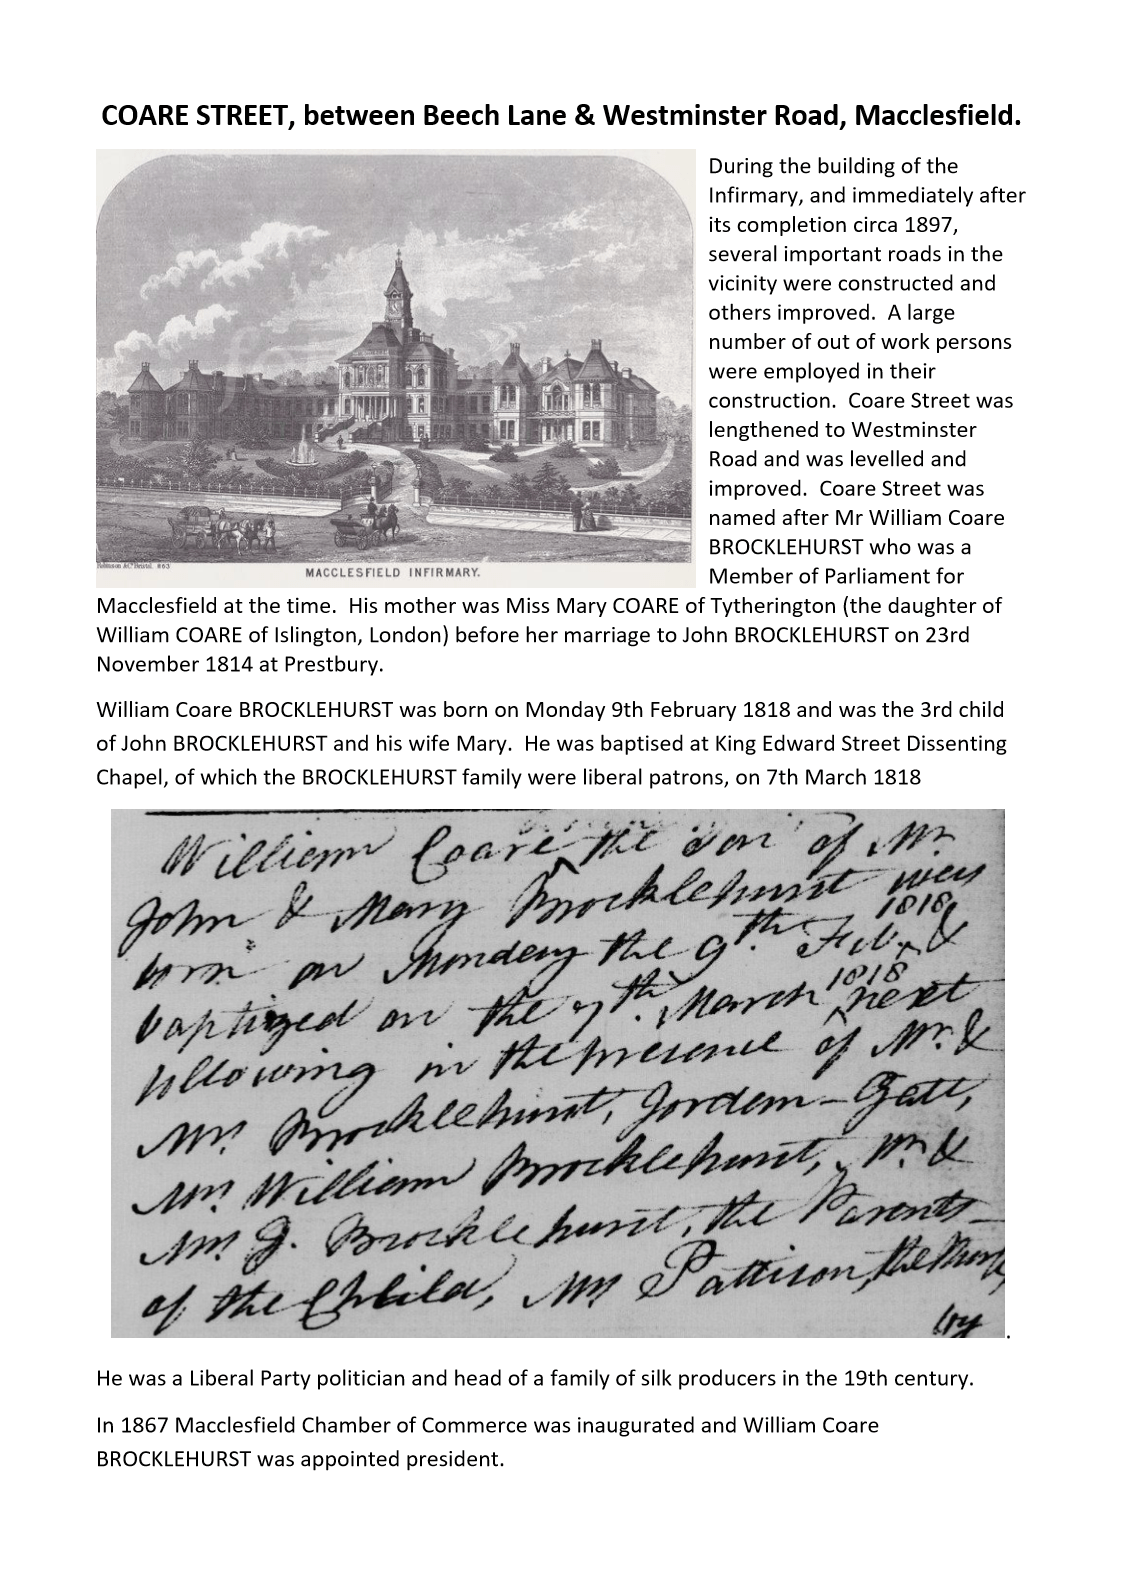 COARE STREET, between Beech Lane & Westminster Road, Macclesfield.
During the building of the
Infirmary, and immediately after
its completion circa 1897,
several important roads in the
vicinity were constructed and
others improved.  A large
number of out of work persons
were employed in their
construction.  Coare Street was
lengthened to Westminster
Road and was levelled and
improved.  Coare Street was
named after Mr William Coare
BROCKLEHURST who was a
Member of Parliament for
Robinson & Co Bristol. 863
MACCLESFIELD INFIRMARY.
Macclesfield at the time.  His mother was Miss Mary COARE of Tytherington (the daughter of
William COARE of Islington, London) before her marriage to John BROCKLEHURST on 23rd
November 1814 at Prestbury.
William Coare BROCKLEHURST was born on Monday 9th February 1818 and was the 3rd child
of John BROCKLEHURST and his wife Mary.  He was baptised at King Edward Street Dissenting
Chapel, of which the BROCKLEHURST family were liberal patrons, on 7th March 1818
William Coare the Son of Mr.
John & Mary Brocklehurst was
born on Monday the 9th. Feb. 1818 &
baptized on the 7th. March 1818 next
following in the presence of Mr. &
Mrs. Brocklehurst, Jordan-Gate,
Mrs. William Brocklehurst, Mr. &
Mrs. J. Brocklehurst, the Parents
of the Child, Mrs Pattison, the
.
He was a Liberal Party politician and head of a family of silk producers in the 19th century.
In 1867 Macclesfield Chamber of Commerce was inaugurated and William Coare
BROCKLEHURST was appointed president.